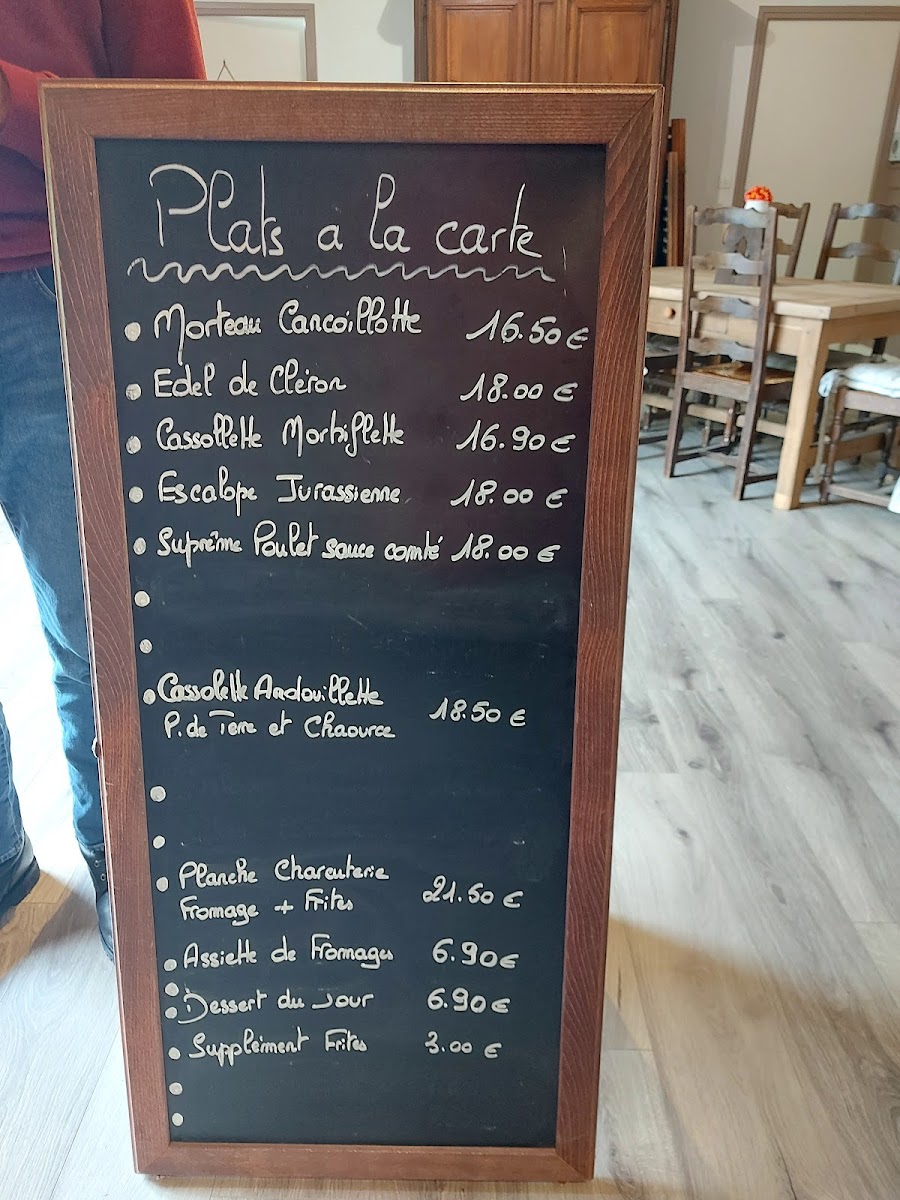 Plats a la carte
Morteau Cancoillotte 16.50 €
Edel de Cléron 18.00 €
Cassollette Morbiflette 16.90 €
Escalope Jurassienne 18.00 €
Suprême Poulet sauce comté 18.00 €
Cassolette Andouillette
P. de Terre et Chaource 18.50 €
Planche Charcuterie
Fromage + Frites 21.50 €
Assiette de Fromages 6.90 €
Dessert du Jour 6.90 €
Supplément Frites 3.00 €